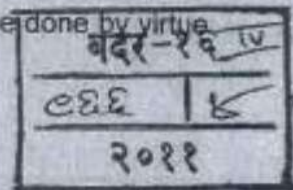 e done by virtue
बदर-१६ IV
९६६
२०११